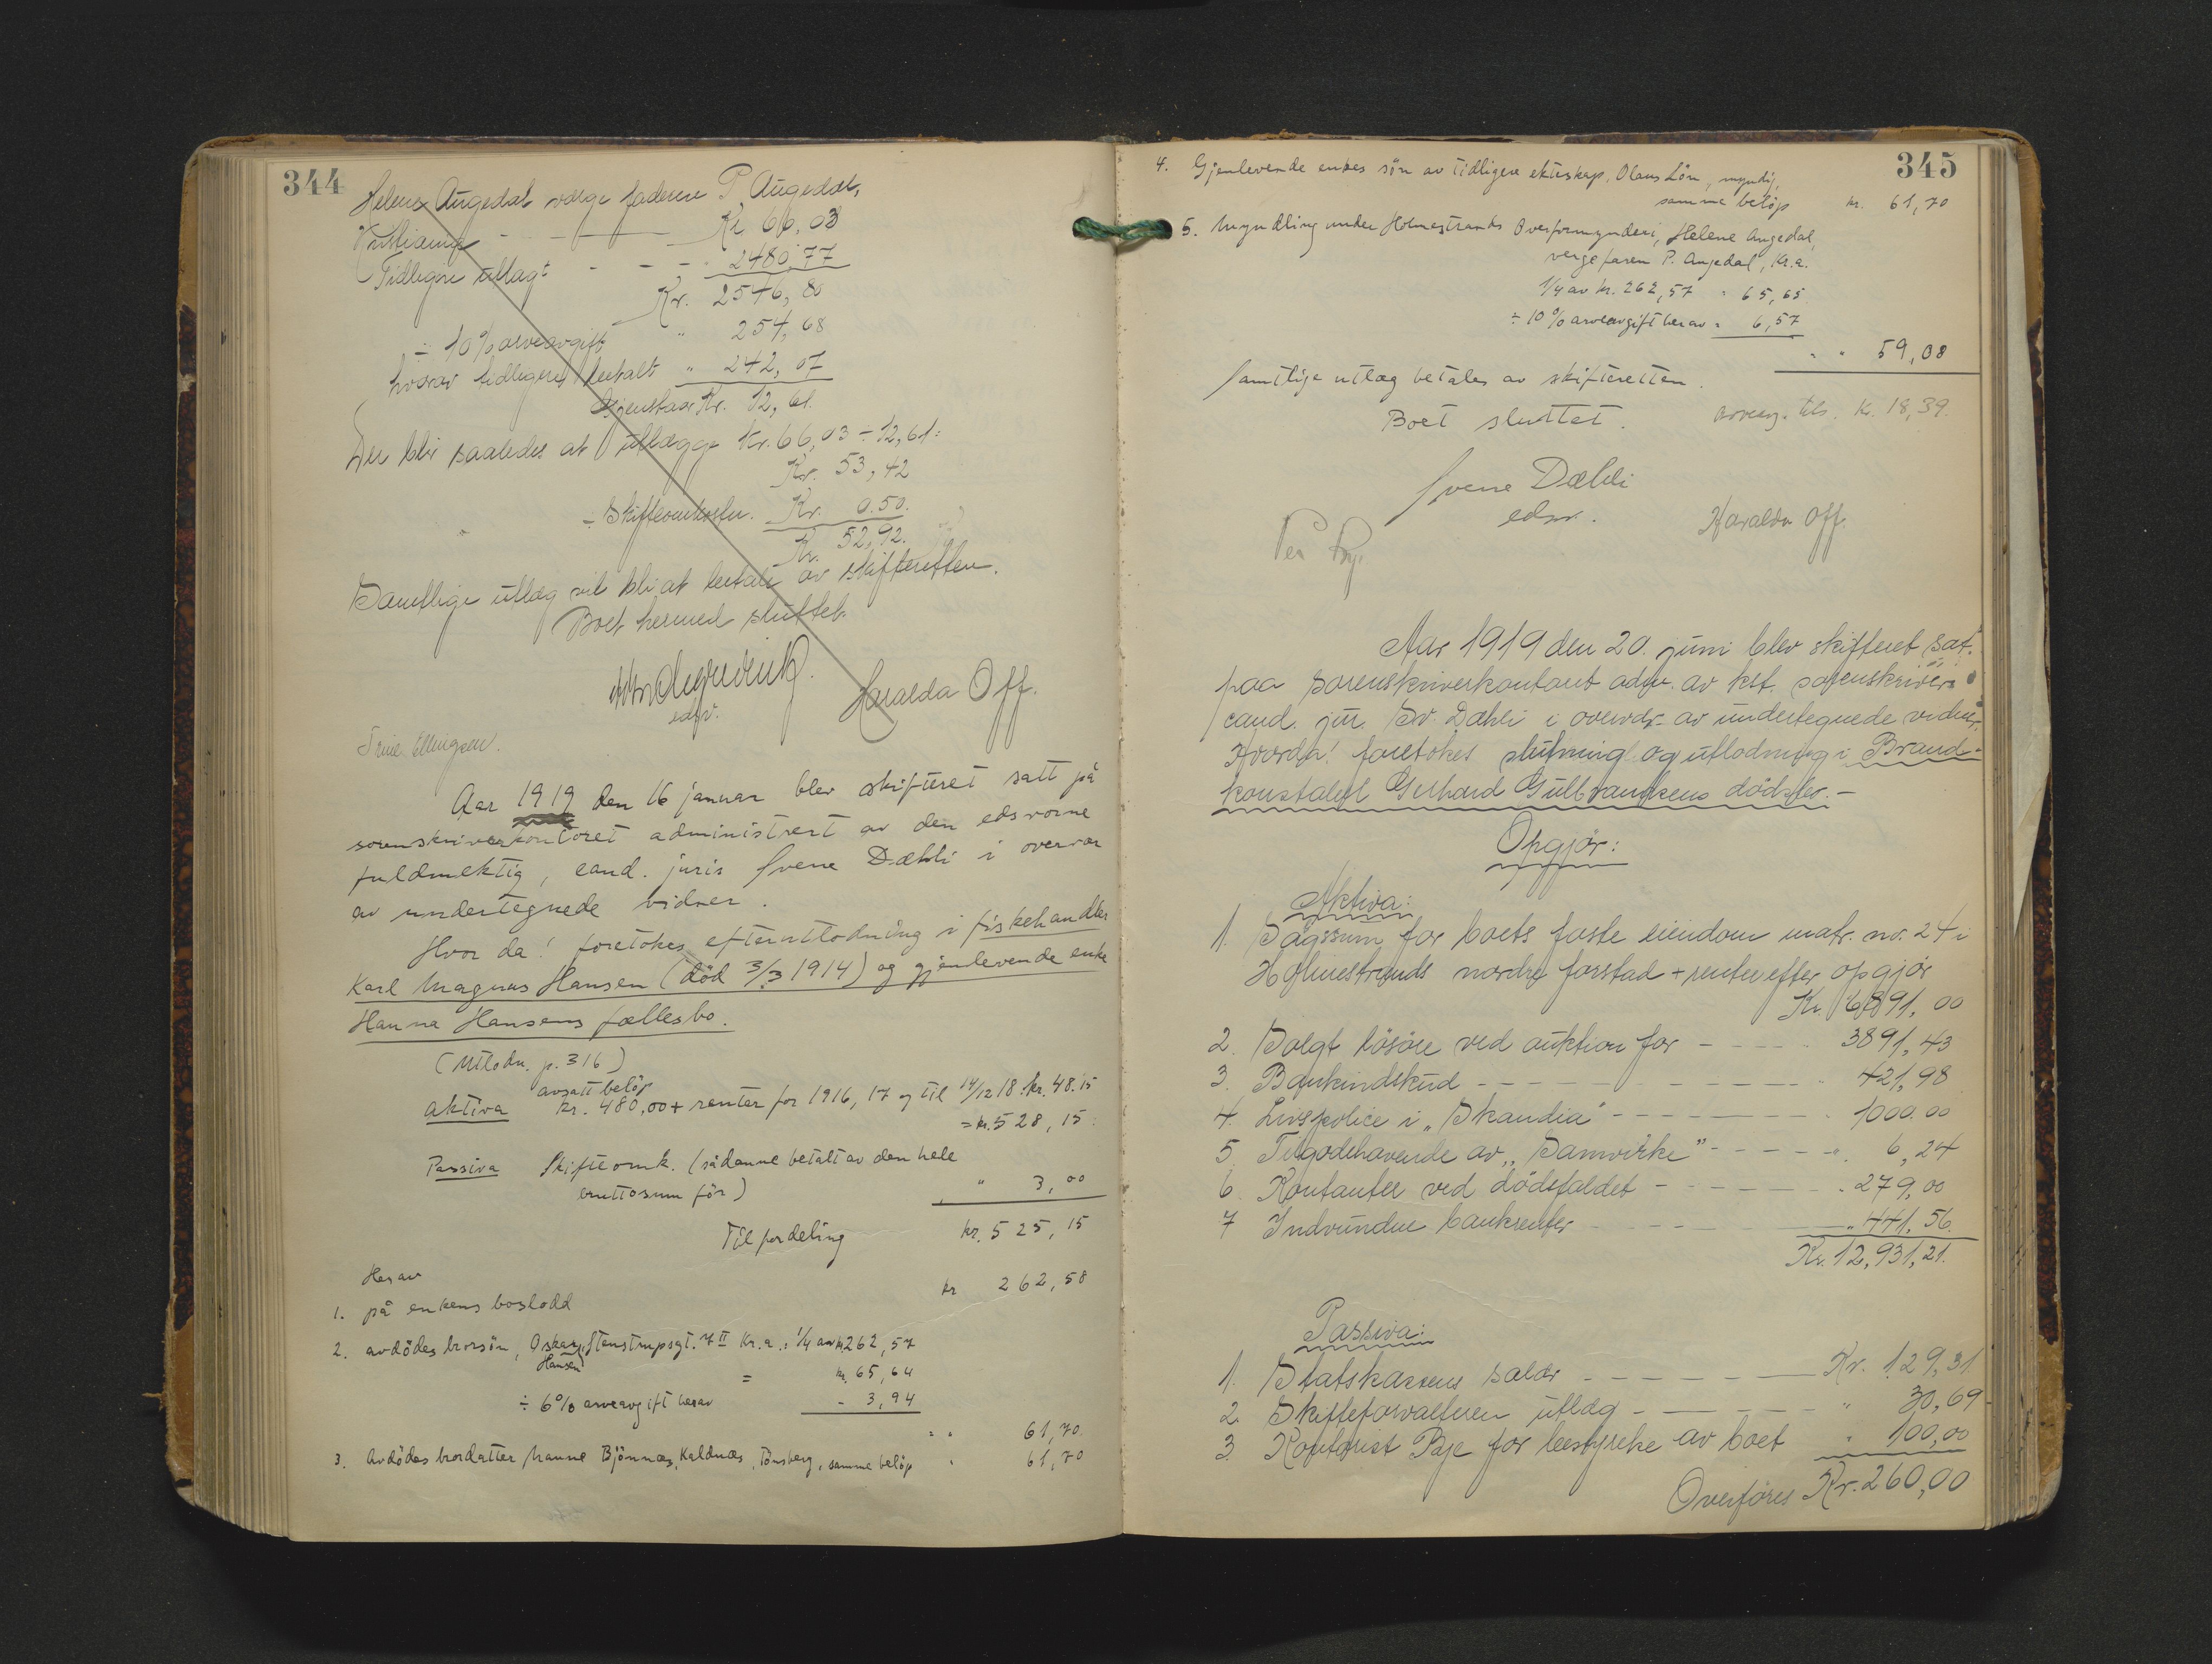 344
Helene Augedal værge faderen P. Augedal,
Kristiania - Kr. 66,03
Tidligere utlagt - - - 2480,77
Kr. 2546,80
÷ 10% arveavgift " 254,68
hvorav tidligere betalt " 242,07
Gjenstaar Kr. 12,61.
Der blir saaledes at utlægge Kr. 66,03 ÷ 12,61:
Kr. 53,42
÷ Skifteomkostn. Kr. 0.50.
Kr. 52,92.
Samtlige utlæg vil bli at betale av skifteretten.
Boet hermed sluttet.
edsv.
Haralda Off.
Trine Ellingsen.
Aar 1919 den 16 januar blev skifteret satt på
sorenskriverkontoret administrert av den edsvorne
fuldmektig, cand. juris Svene Dæhli i overvær
av undertegnede vidner.
Hvor da! foretokes efterutlodning i fiskehandler
Karl Magnus Hansen (död 3/3 1914) og gjenlevende enke
Hanna Hansens fællesbo.
(Utlodn. p. 316)
avsatt beløp
Aktiva kr. 480,00 + renter for 1916, 17 og til 14/12 18. kr. 48.15
= kr. 528,15.
Passiva Skifteomk. (sådanne betalt av den hele
bruttosum før) " 3,00
Til fordeling kr. 525,15
Herav
1. på enkens boslodd kr 262,58
2. avdödes brorsön, Oskar Hansen, Stenstrupsgt. 7 II Kr.a.: 1/4 av kr. 262,57
= kr. 65,64
÷ 6% arveavgift herav - 3,94
" " 61,70.
3. Avdödes brordatter Nanne Björnnæs, Kaldnæs, Tönsberg, samme belöp " 61,70
345
4. Gjenlevende enkes sön av tidligere ekteskap, Olaus Lön, myndig,
samme belöp kr. 61,70
5. Myndling under Holmestrands Overformynderi, Helene Augedal,
verge faren P. Augedal, Kr.a.
1/4 av kr. 262,57 " 65,65
÷ 10% arveavgift herav " 6,57
" " 59,08
Samtlige utlæg betales av skifteretten.
Boet sluttet. Arveavg. tils. Kr. 18,39.
Svene Dæhli
edsv.
Haralda Off.
Aar 1919 den 20. juni blev skifteret sat
paa sorenskriverkontoret adm. av kst. sorenskriver
cand. jur. Sv. Dæhli i overvær av undertegnede vidner.
Hvorda! foretokes slutning og utlodning i Brand-
konstabel Gerhard Gulbrandsens dödsbo. -
Opgjör:
Aktiva:
1. Salgssum for boets faste eiendom matr. nr. 24 i
Holmestrands nordre forstad + renter efter opgjör
Kr. 6891,00
2. Solgt lösöre ved auktion for - - - 3891,43
3. Bankindskud - - - - 421,98
4. Livspolice i "Skandia" - - - - 1000.00
5 Tilgodehavende av "Samvirke" - - - - 6,24
6. Kontanter ved dödsfaldet - - - - 279,00
7 Indvundne bankrenter - - - - " 441,56.
Kr. 12,931,21.
Passiva:
1. Statskassens salær - - - - Kr. 129,31
2. Skifteforvalteren utlæg - - - - " 30,69
3. Kontorist Bye for bestyrelse av boet " 100,00
Overföres Kr. 260,00